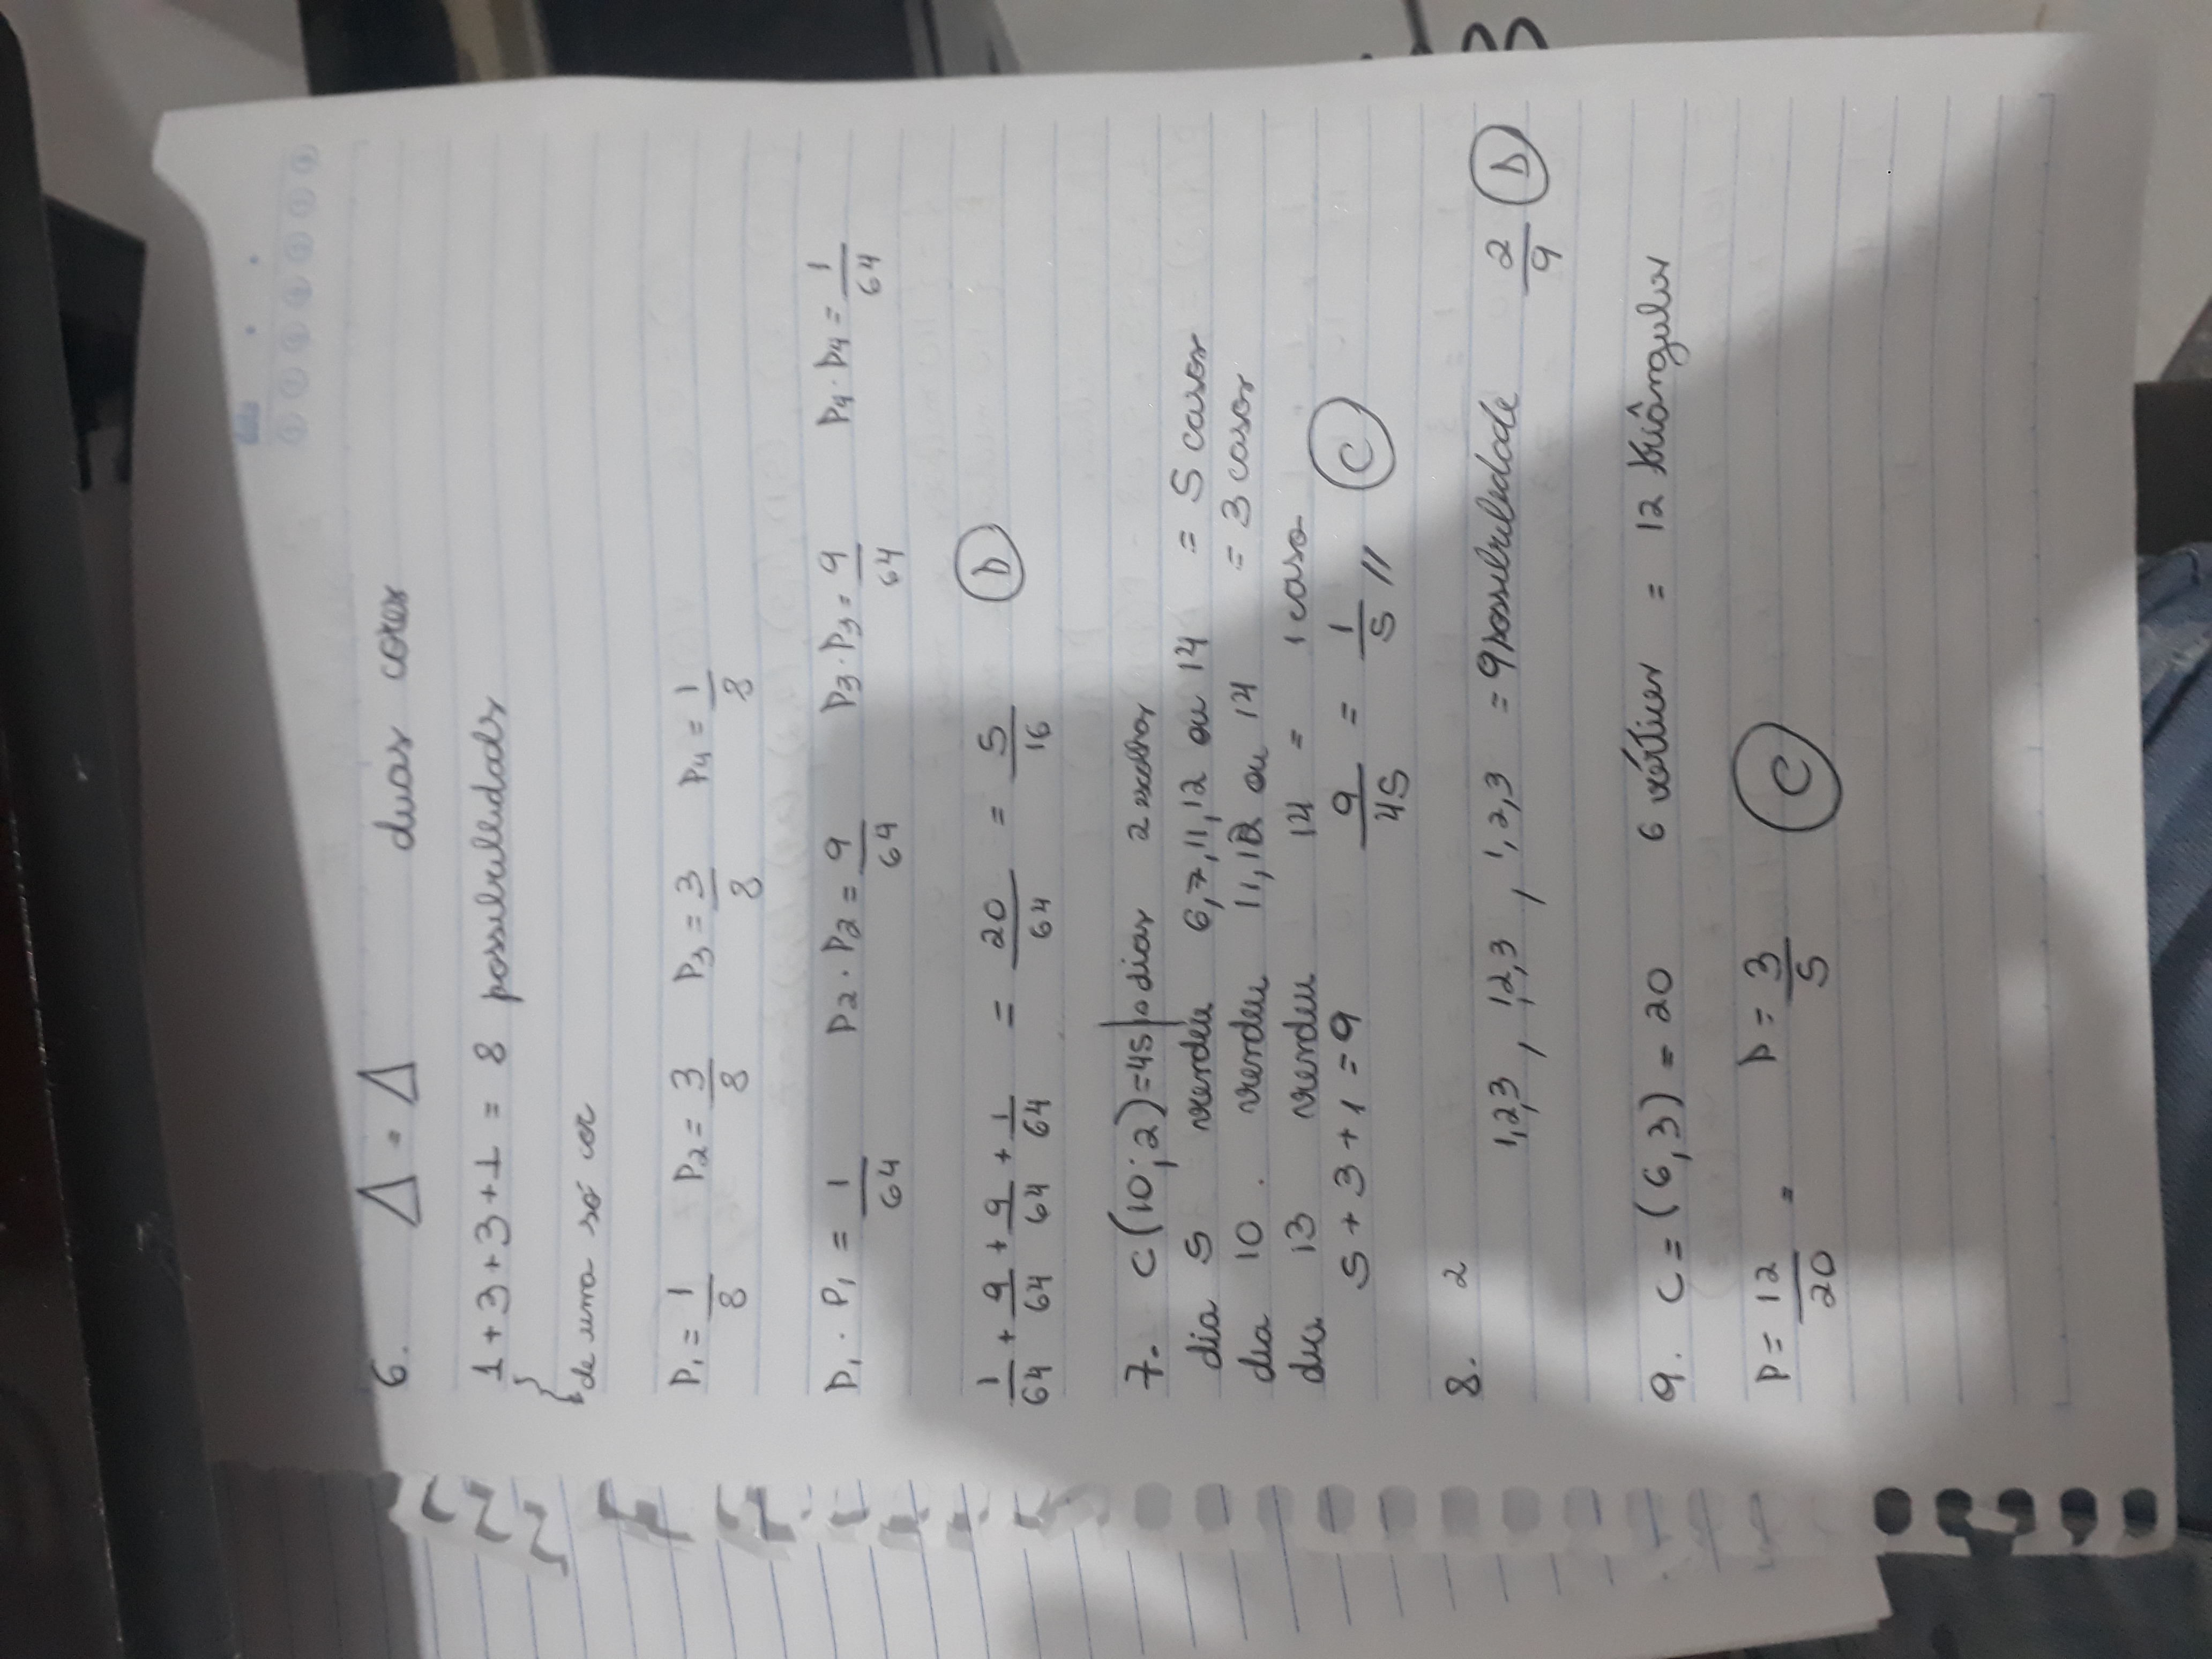 data
6. Δ = Δ duas cores
1 + 3 + 3 + 1 = 8 possibilidads
de uma só cor
P₁ = 1/8 P₂ = 3/8 P₃ = 3/8 P₄ = 1/8
P₁ . P₁ = 1/64 P₂ . P₂ = 9/64 P₃ . P₃ = 9/64 P₄ . P₄ = 1/64
1/64 + 9/64 + 9/64 + 1/64 = 20/64 = 5/16 D
7. C(10;2)=45 | 10 dias 2 escolhas
dia 5 vendeu 6,7,11,12 ou 14 = 5 casos
dia 10 . vendeu 11,12 ou 14 = 3 casos
dia 13 vendeu 14 = 1 caso
5 + 3 + 1 = 9 9/45 = 1/5 // C
8. 2
1,2,3 , 1,2,3 , 1,2,3 = 9 possibilidade 2/9 D
9. C = (6,3) = 20 6 vértices = 12 triângulos
P = 12/20 = P = 3/5 C